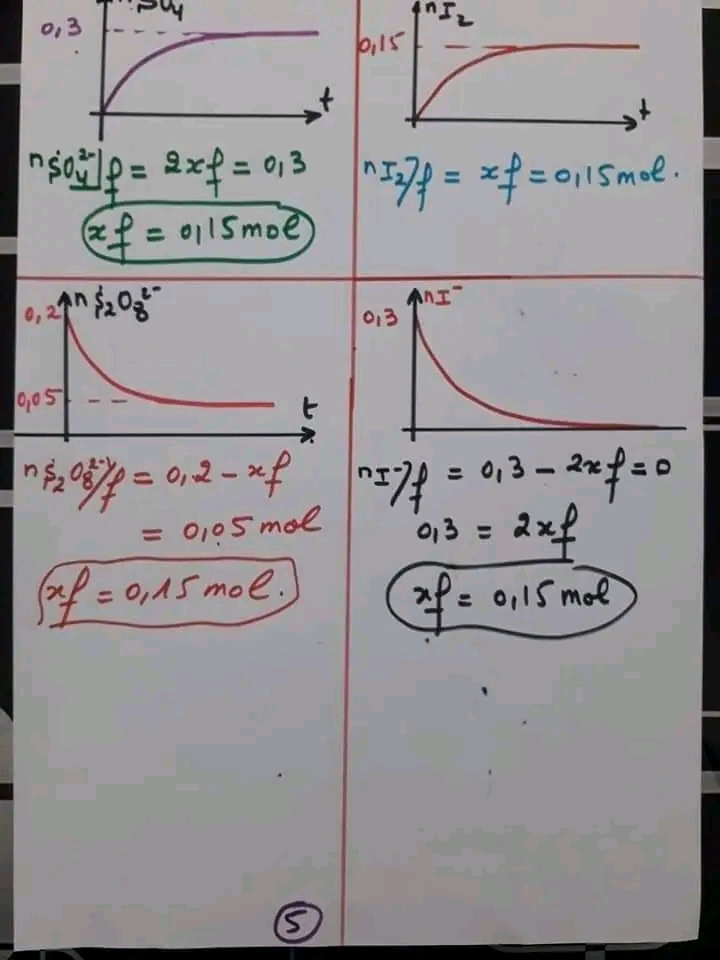 nSO₄
0,3
t
nSO₄²⁻]f = 2xf = 0,3
xf = 0,15 mol
nI₂
0,15
t
nI₂]f = xf = 0,15 mol.
nS₂O₈²⁻
0,2
0,05
t
nS₂O₈²⁻]f = 0,2 - xf
= 0,05 mol
xf = 0,15 mol.
nI⁻
0,3
nI⁻]f = 0,3 - 2xf = 0
0,3 = 2xf
xf = 0,15 mol
5